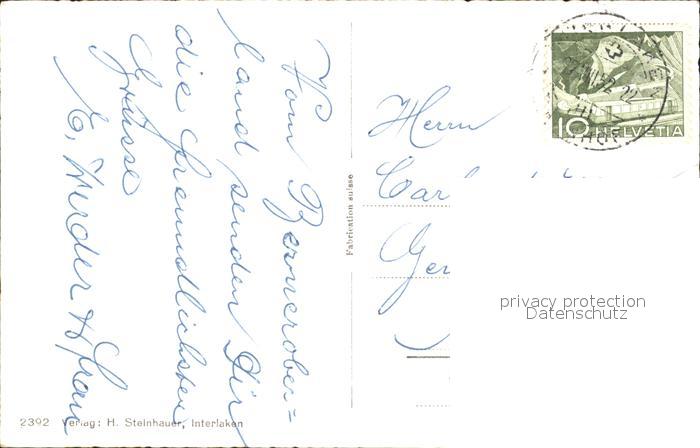 Vom Bernerober=
land senden Dir
die freundlichsten
Grüsse
E. Wurder & Frau
Fabrication suisse
Herrn
Car
Ger
10 HELVETIA
privacy protection
Datenschutz
2392 Verlag: H. Steinhauer, Interlaken